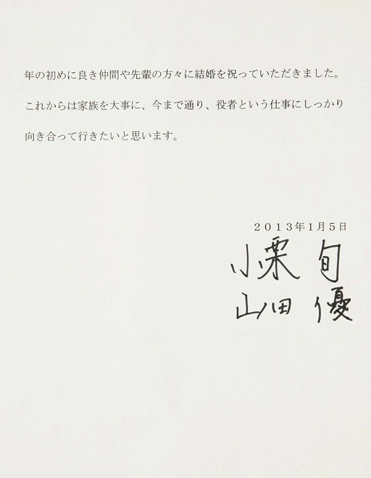 年の初めに良き仲間や先輩の方々に結婚を祝っていただきました。
これからは家族を大事に、今まで通り、役者という仕事にしっかり
向き合って行きたいと思います。
２０１３年１月５日
小栗 旬
山田 優